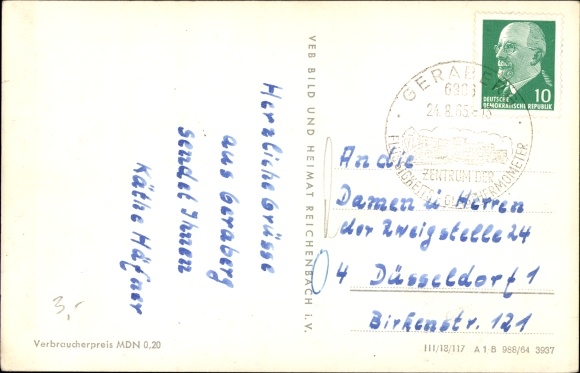 Herzliche Grüsse
aus Geraberg
sendet Ihnen
Käthe Häfner
3,-
Verbraucherpreis MDN 0,20
VEB BILD UND HEIMAT REICHENBACH i. V.
DEUTSCHE
DEMOKRATISCHE REPUBLIK
10
GERABERG
6306
24.8.65
ZENTRUM DER
THERMOMETER
An die
Damen u Herren
der Zweigstelle 24
4 Düsseldorf 1
Birkenstr. 121
III/18/117 A 1 B 988/64 3937